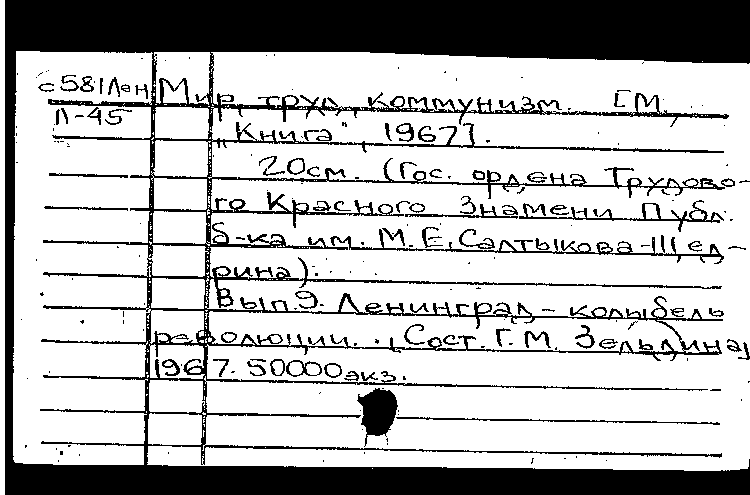 с581Лен Мир, труд, коммунизм. [М.,
Л-45 „Книга", 1967].
20см. (Гос. ордена Трудово-
го Красного Знамени Публ.
б-ка им. М.Е. Салтыкова-Щед-
рина).
Вып.9. Ленинград - колыбель
революции. . (Сост. Г.М. Зельдина)
1967. 50000экз.